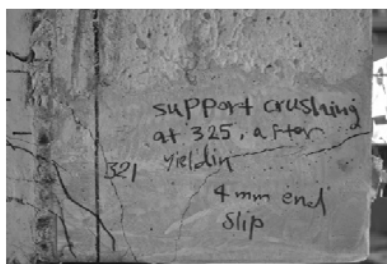 support crushing
at 325, after
yieldin
321
4 mm end
slip